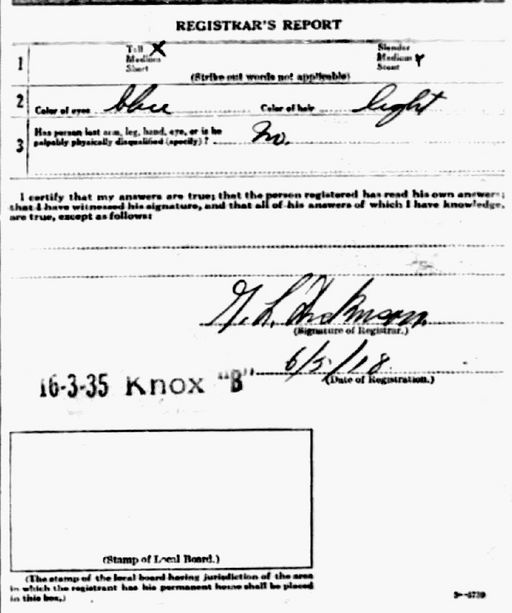 REGISTRAR'S REPORT
1 Tall X Slender
Medium Medium X
Short Stout
(Strike out words not applicable)
2 Color of eyes blue Color of hair light
3 Has person lost arm, leg, hand, eye, or is he
palpably physically disqualified (specify)? No.
I certify that my answers are true; that the person registered has read his own answers;
that I have witnessed his signature, and that all of his answers of which I have knowledge,
are true, except as follows:
(Signature of Registrar.)
6/5/18
16-3-35 Knox "B" (Date of Registration.)
(Stamp of Local Board.)
(The stamp of the local board having jurisdiction of the area
in which the registrant has his permanent home shall be placed
in this box.)